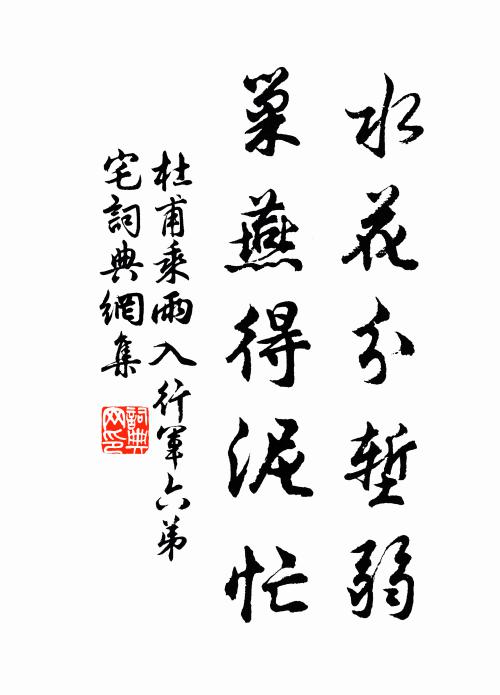 水花分塹弱
巢燕得泥忙
杜甫乘雨入行軍六弟
宅詞典網集
詞典
网印